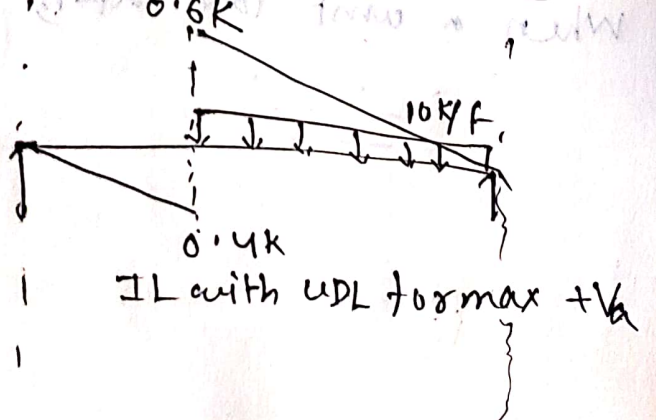 0.6K
10K/f
0.4K
IL with UDL for max +Va